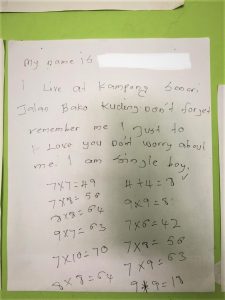 My name is
I Live at Kampong
Jalan Bako Kuching Don't forget
remember me I Just to
Love you Don't worry about
me. I am Single boy.
7x7=49 4+4=8
7x8=56 9x9=8
8x8=64 7x6=42
9x7=63 7x8=56
7x10=70 7x9=63
8x8=64 9*9=18